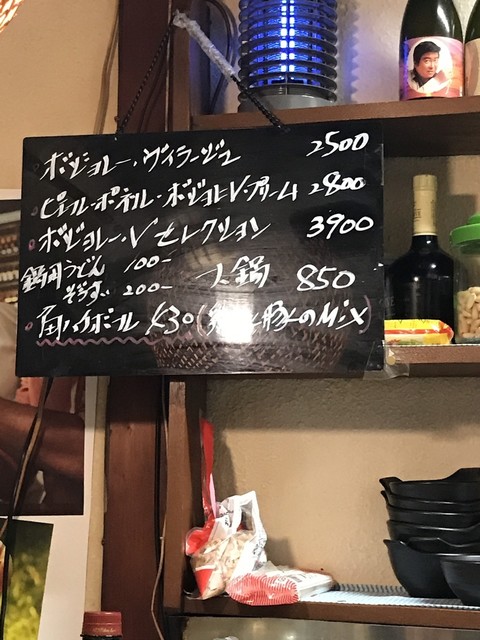 ボジョレー・ヴィラージュ 2500
ピエル・ポネル・ボジョレV・プリーム 2800
ボジョレー・Vセレクション 3900
鍋用うどん 100-
ぞうすい 200- 一人鍋 850
角ハイボール (鶏と豚のMix)